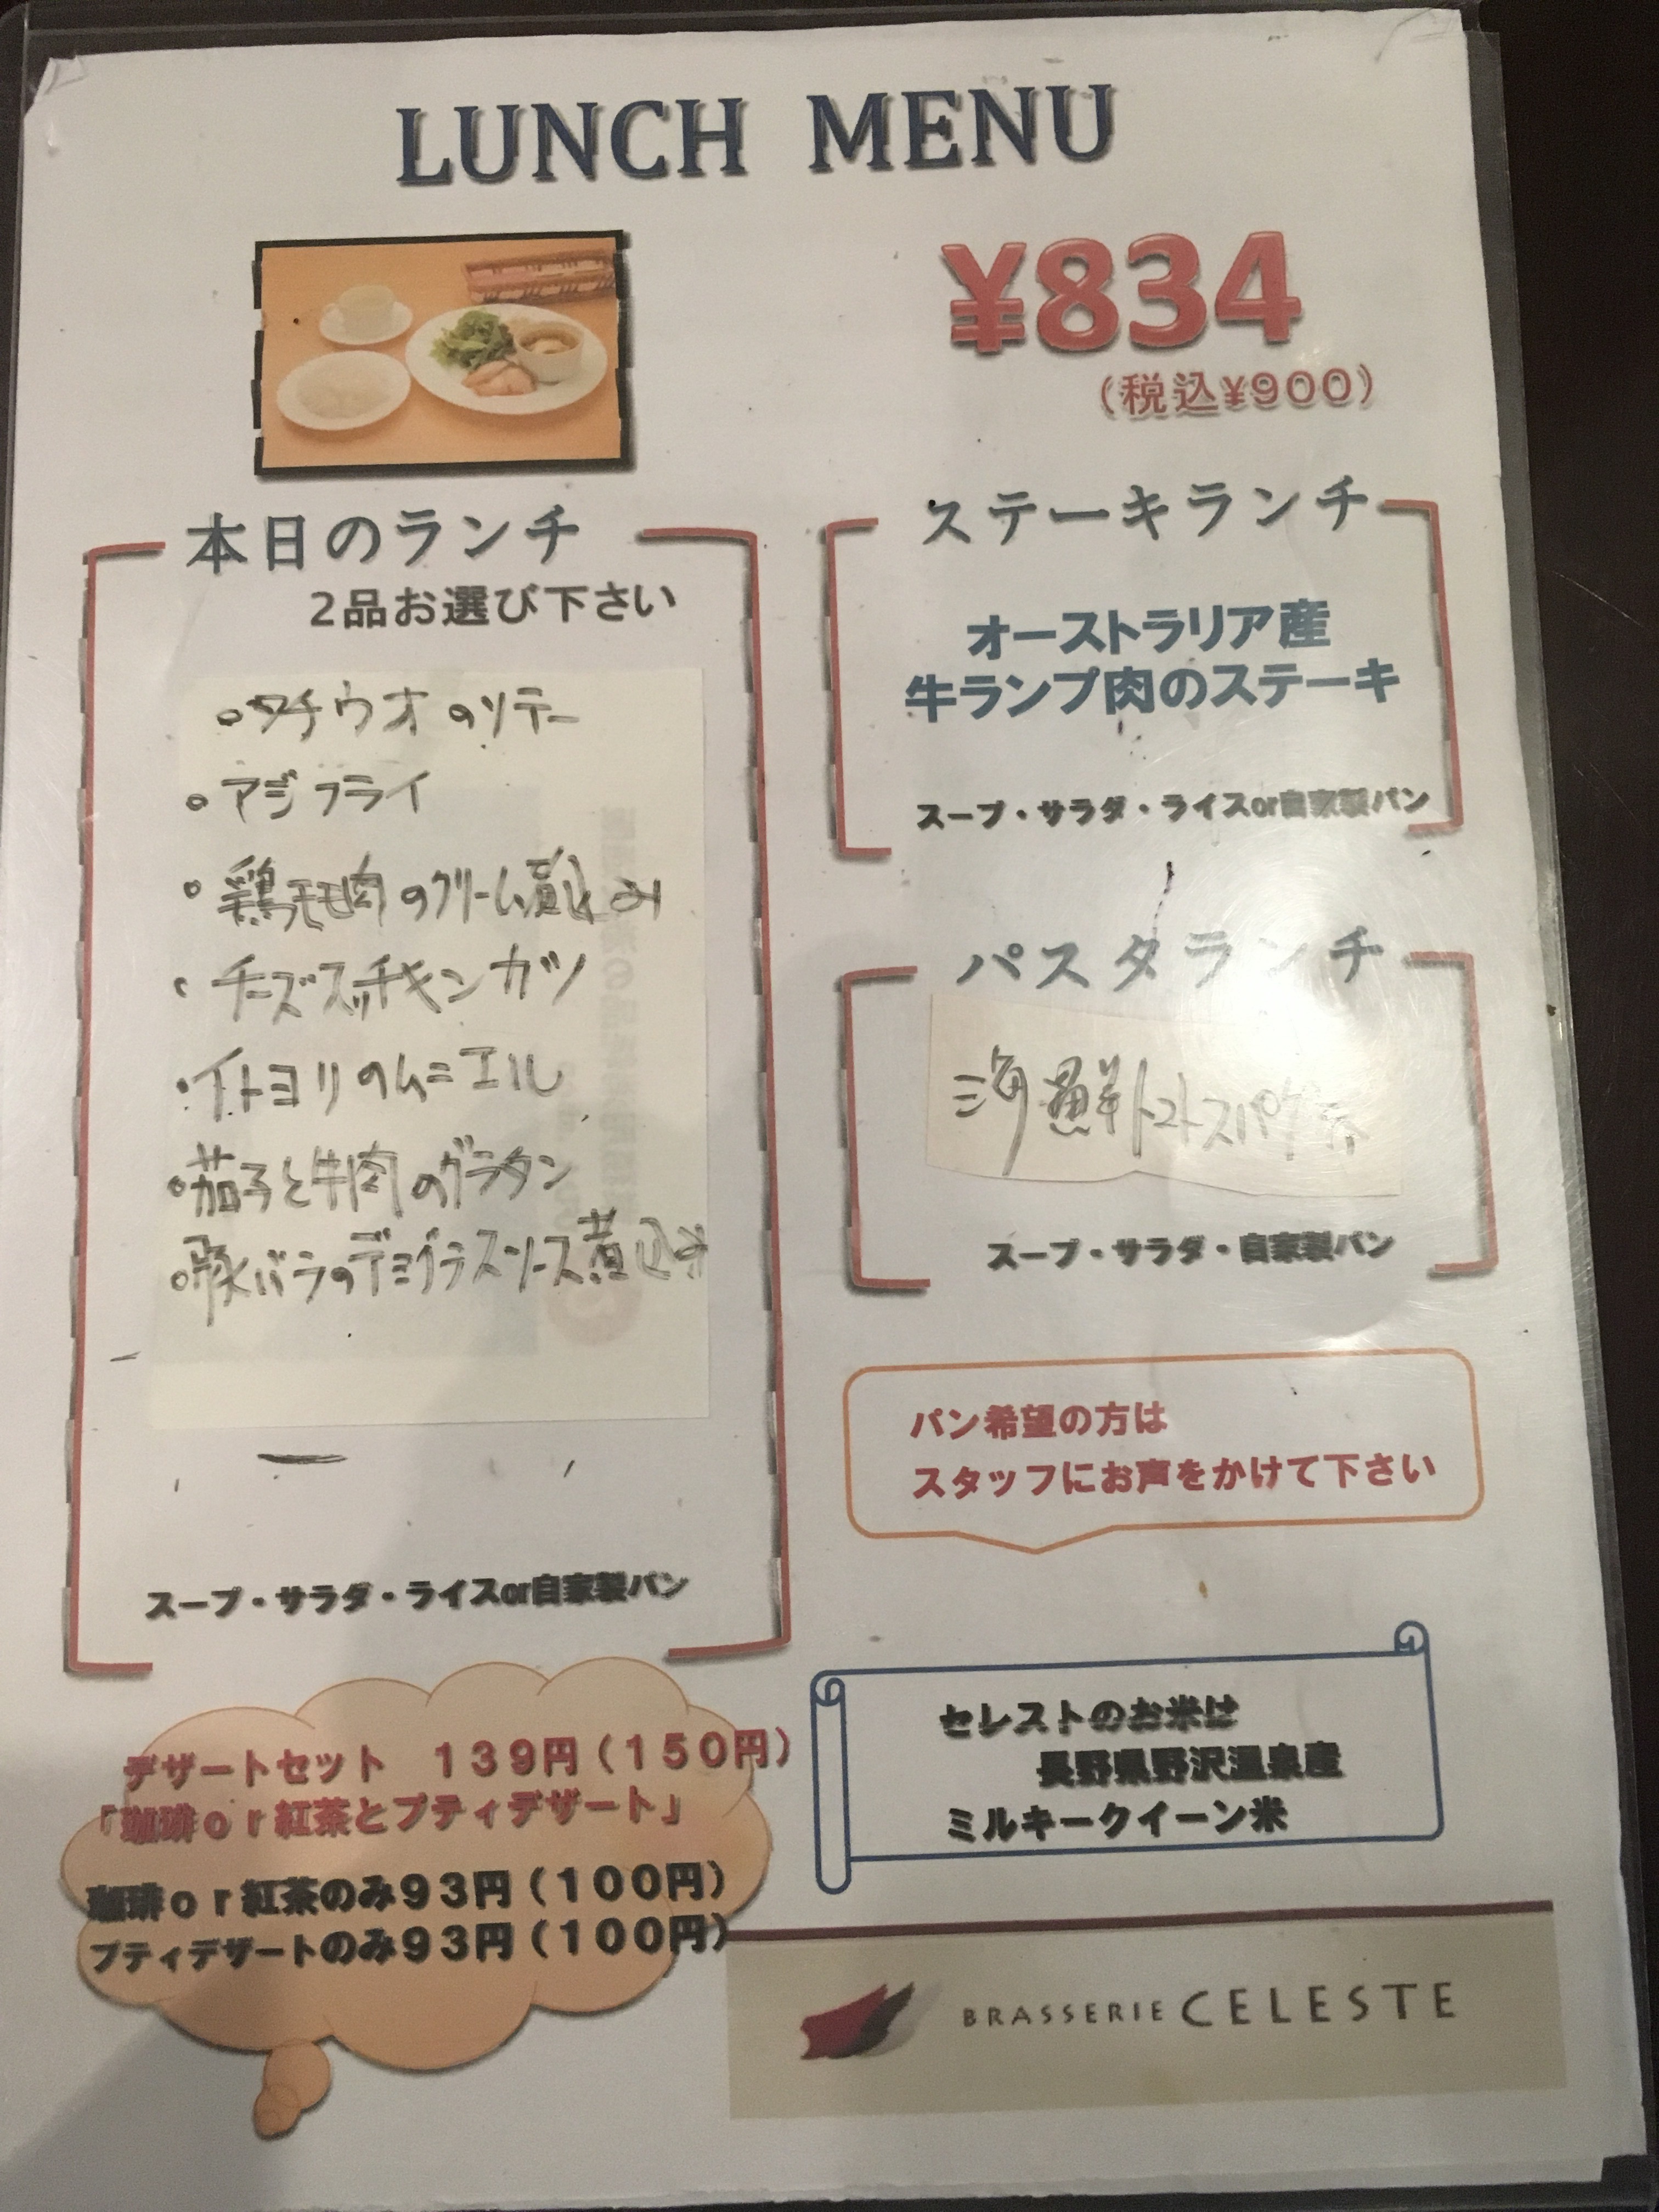 LUNCH MENU
¥834
（税込¥900）
本日のランチ
2品お選び下さい
○タチウオのソテー
○アジフライ
○鶏モモ肉のクリーム煮込み
・チーズスッチキンカツ
・イトヨリのムニエル
○茄子と牛肉のグラタン
○豚バラのデミグラスソース煮込み
スープ・サラダ・ライスor自家製パン
ステーキランチ
オーストラリア産
牛ランプ肉のステーキ
スープ・サラダ・ライスor自家製パン
パスタランチ
海鮮トマトスパゲティ
スープ・サラダ・自家製パン
パン希望の方は
スタッフにお声をかけて下さい
デザートセット　139円（150円）
「珈琲or紅茶とプティデザート」
珈琲or紅茶のみ93円（100円）
プティデザートのみ93円（100円）
セレストのお米は
長野県野沢温泉産
ミルキークイーン米
BRASSERIE CELESTE